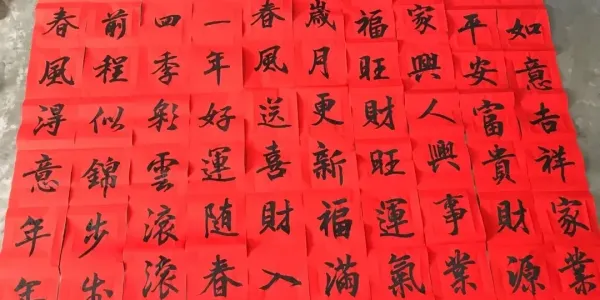 如意吉祥家業
平安富貴財源
家興人興事業
福旺財旺運氣
歲月更新福滿
春風送喜財入
一年好運隨春
四季彩雲滾滾
前程似錦步步
春風得意年年